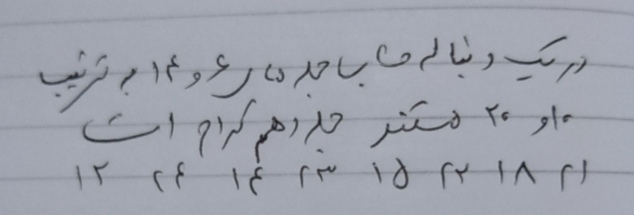 در یک دنباله حسابی جمله های ۶ و ۱۴ به ترتیب
۱۰ و ۲۰ هستند جمله دهم کدام است
۲۱ ۱۸ ۲۲ ۱۵ ۲۳ ۱۴ ۲۴ ۱۲